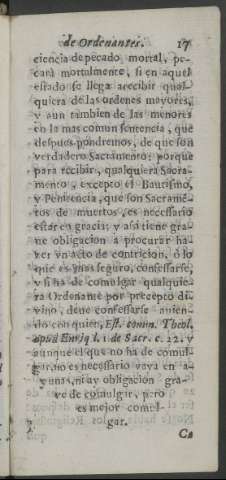 de Ordenantes. 17
ciencia de pecado mortal, pe-
cará mortalmente, si en aquel
estado se llega arecibir qual-
quiera de las ordenes mayores,
y aun tambien de las menores
en la mas comun sentencia, que
despues pondremos, de que son
verdadero Sacramento: porque
para recibir, qualquiera Sacra-
mento, excepto el Bautismo,
y Penitencia, que son Sacramẽ-
tos de muertos, es necessario
estar en gracia; y asi tiene gra-
ue obligacion à procurar ha-
zer vn acto de contricion, ò lo
que es mas seguro, confessarse,
y si ha de comulgar qualquie-
ra Ordenante por precepto di-
vino, deue confessarse auien-
do con quien, Est. comun. Theol.
apud Enriq l. 1. de Sacr. c. 22. y
aunque el que no ha de comul-
gar, no es necessario vaya en a-
yunas, ni ay obligacion gra-
ve de comulgar, pero
es mejor comul-
gar.
Ca